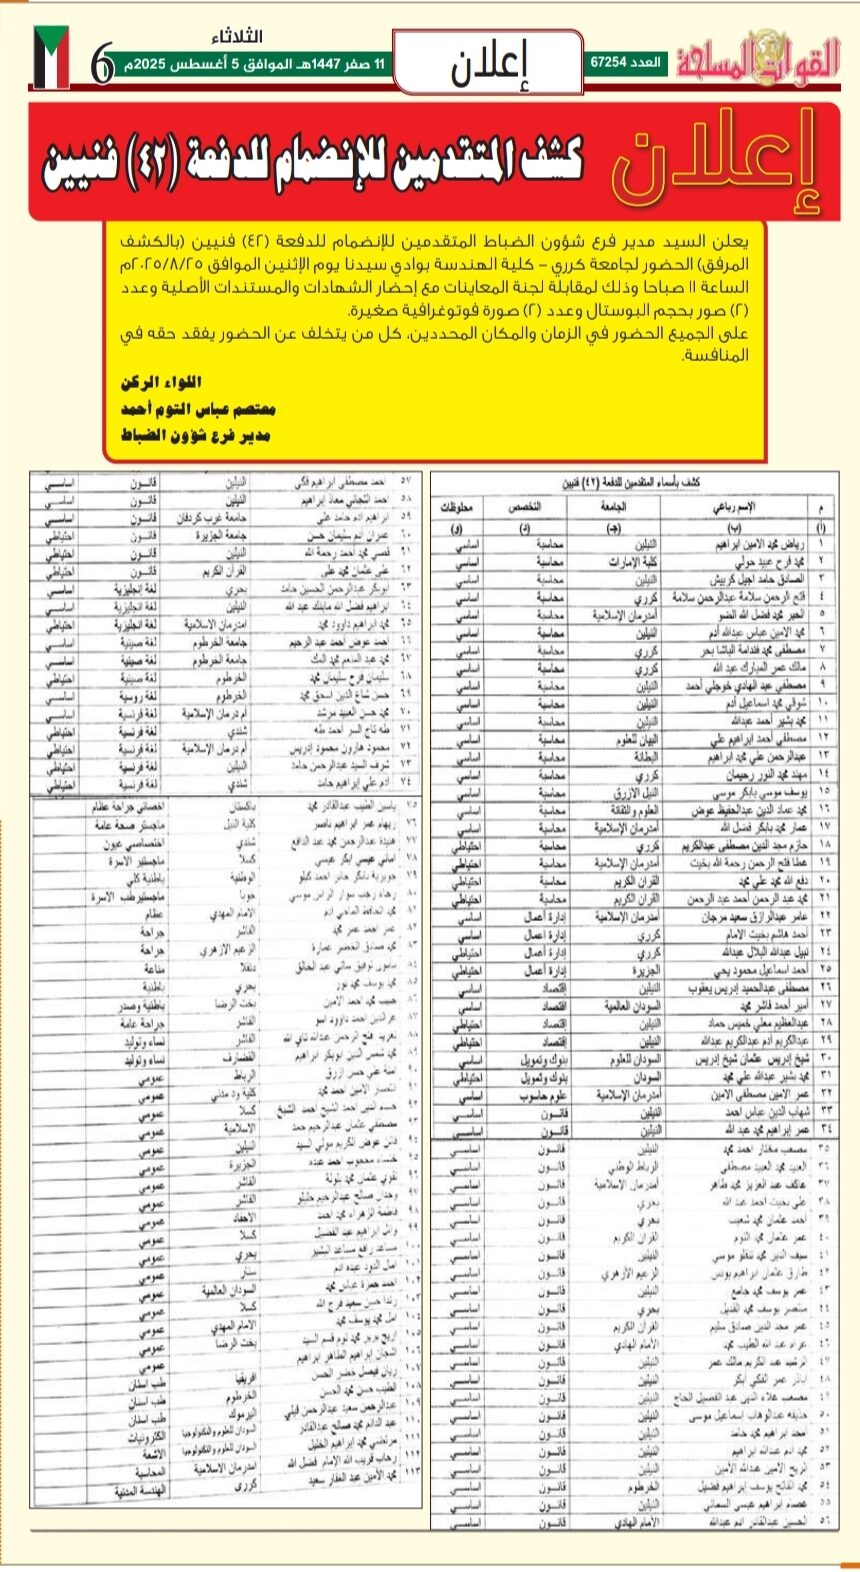 القوات المسلحة
العدد 67254
إعلان
الثلاثاء
11 صفر 1447هـ الموافق 5 أغسطس 2025م
6
إعلان
كشف المتقدمين للإنضمام للدفعة (٤٢) فنيين
يعلن السيد مدير فرع شؤون الضباط المتقدمين للإنضمام للدفعة (٤٢) فنيين (بالكشف
المرفق) الحضور لجامعة كرري - كلية الهندسة بوادي سيدنا يوم الإثنين الموافق ٢٠٢٥/٨/٢٥م
الساعة ١١ صباحا وذلك لمقابلة لجنة المعاينات مع إحضار الشهادات والمستندات الأصلية وعدد
(٢) صور بحجم البوستال وعدد (٢) صورة فوتوغرافية صغيرة.
على الجميع الحضور في الزمان والمكان المحددين، كل من يتخلف عن الحضور يفقد حقه في
المنافسة.
اللواء الركن
معتصم عباس التوم أحمد
مدير فرع شؤون الضباط
كشف بأسماء المتقدمين للدفعة (٤٢) فنيين
م الإسم رباعي الجامعة التخصص محلوظات
(أ) (ب) (جـ) (د) (ر)
١ رياض محمد الامين ابراهيم النيلين محاسبة اساسي
٢ محمد فرح عبيد حولي كلية الإمارات محاسبة اساسي
٣ الصادق حامد اجيل كربيش النيلين محاسبة اساسي
٤ فتح الرحمن سلامة عبدالرحمن سلامة كرري محاسبة اساسي
٥ الحبر محمد فضل الله الضو أمدرمان الإسلامية محاسبة اساسي
٦ محمد الامين عباس عبدالله أدم النيلين محاسبة اساسي
٧ مصطفى محمد قندامة الباشا بحر كرري محاسبة اساسي
٨ مالك عمر المبارك عبد الله كرري محاسبة اساسي
٩ مصطفى عبد الهادي خوجلي أحمد النيلين محاسبة اساسي
١٠ شوقي محمد اسماعيل أدم النيلين محاسبة اساسي
١١ محمد بشير أحمد عبدالله النيلين محاسبة اساسي
١٢ مصطفي أحمد ابراهيم علي البيان للعلوم محاسبة اساسي
١٣ عبدالرحمن علي محمد ابراهيم البطانة محاسبة اساسي
١٤ مهند محمد النور رحيمان كرري محاسبة اساسي
١٥ يوسف موسي بابكر موسي النيل الازرق محاسبة اساسي
١٦ محمد عماد الدين عبدالحفيظ عوض العلوم والتقانة محاسبة اساسي
١٧ عمار محمد بابكر فضل الله أمدرمان الإسلامية محاسبة اساسي
١٨ حازم مجد الدين مصطفى عبدالكريم كرري محاسبة احتياطي
١٩ عطا فتح الرحمن رحمة الله بخيت أمدرمان الإسلامية محاسبة احتياطي
٢٠ دفع الله محمد علي محمد القران الكريم محاسبة احتياطي
٢١ محمد عبد الرحمن أحمد عبد الرحمن القران الكريم محاسبة احتياطي
٢٢ عامر عبدالرازق سعيد مرجان أمدرمان الإسلامية إدارة أعمال اساسي
٢٣ أحمد هاشم بخيت الامام كرري إدارة أعمال اساسي
٢٤ نبيل عبدالله البلال عبدالله كرري إدارة أعمال احتياطي
٢٥ أحمد اسماعيل محمود يحي الجزيرة إدارة أعمال احتياطي
٢٦ مصطفى عبدالحميد إدريس يعقوب النيلين إقتصاد اساسي
٢٧ أمير أحمد فاشر محمد السودان العالمية اقتصاد اساسي
٢٨ عبدالعظيم معلي خميس حماد النيلين اقتصاد احتياطي
٢٩ عبدالكريم أدم عبدالكريم عبدالله النيلين إقتصاد احتياطي
٣٠ شيخ إدريس عثمان شيخ إدريس السودان للعلوم بنوك وتمويل اساسي
٣١ محمد بشير عبدالله علي محمد السودان بنوك وتمويل احتياطي
٣٢ عمر الامين مصطفى الامين أمدرمان الإسلامية علوم حاسوب اساسي
٣٣ شهاب الدين عباس احمد النيلين قانون اساسي
٣٤ عمر إبراهيم محمد عبد الله النيلين قانون اساسي
٣٥ مصعب مختار احمد محمد النيلين قانون اساسي
٣٦ العبيد محمد العبيد مصطفي الرباط الوطني قانون اساسي
٣٧ عاكف عبد العزيز محمد طاهر أمدرمان الإسلامية قانون اساسي
٣٨ علي بخيت أحمد عبد الله بحري قانون اساسي
٣٩ أحمد عثمان محمد شعيب بحري قانون اساسي
٤٠ عمر عثمان محمد التوم القران الكريم قانون اساسي
٤١ سيف الدين محمد موسي النيلين قانون اساسي
٤٢ طارق عثمان ابراهيم يونس الزعيم الأزهري قانون اساسي
٤٣ عمر يوسف محمد جامع النيلين قانون اساسي
٤٤ منتصر يوسف محمد بحري قانون اساسي
٤٥ عمر مجد الدين صادق سليم القران الكريم قانون اساسي
٤٦ عبد الله الطيب محمد الأمام الهادي قانون اساسي
٤٧ الرشيد عبد الكريم مالك عمر النيلين قانون اساسي
٤٨ اباذر عمر الفكي أبكر النيلين قانون اساسي
٤٩ مصعب علاء الدين عبد الفضيل الحاج النيلين قانون اساسي
٥٠ حذيفه عبدالوهاب إسماعيل موسى النيلين قانون اساسي
٥١ أمجد ابراهيم محمد حامد النيلين قانون اساسي
٥٢ محمد أدم عبدالله ابراهيم النيلين قانون اساسي
٥٣ الامين عبدالله الامين النيلين قانون اساسي
٥٤ محمد الفاتح يوسف إبراهيم فضيل الخرطوم قانون اساسي
٥٥ عصام ابراهيم عيسى السماني النيلين قانون اساسي
٥٦ الحسين عبدالقادر ادم عبدالله الأمام الهادي قانون اساسي
٥٧ احمد مصطفى ابراهيم فكي النيلين قانون اساسي
٥٨ احمد التجاني معاذ إبراهيم النيلين قانون اساسي
٥٩ ابراهيم ادم حامد علي جامعة غرب كردفان قانون اساسي
٦٠ عمران أدم سليمان حسن جامعة الجزيرة قانون احتياطي
٦١ قصي محمد أحمد رحمة الله النيلين قانون احتياطي
٦٢ على عثمان محمد علي القران الكريم قانون احتياطي
٦٣ ابوبكر عبدالرحمن الحسين حامد بحري لغة انجليزية اساسي
٦٤ ابراهيم فضل الله عبد الله النيلين لغة انجليزية اساسي
٦٥ محمد ابراهيم داوود محمد امدرمان الاسلامية لغة انجليزية احتياطي
٦٦ احمد عوض أحمد عبد الرحيم جامعة الخرطوم لغة صينية اساسي
٦٧ محمد عبد المنعم محمد الملك جامعة الخرطوم لغة صينية اساسي
٦٨ سليمان فرح سليمان محمد الخرطوم لغة صينية احتياطي
٦٩ حسن شاع الدين اسحق محمد الخرطوم لغة روسية اساسي
٧٠ محمد حسن العبيد مرشد أم درمان الإسلامية لغة فرنسية اساسي
٧١ طه تاج السر أحمد طه شندي لغة فرنسية احتياطي
٧٢ محمود هارون محمود إدريس أم درمان الإسلامية لغة فرنسية احتياطي
٧٣ شرف السيد عبدالرحمن حامد النيلين لغة فرنسية احتياطي
٧٤ أدم علي إبراهيم حامد شندي لغة فرنسية احتياطي
٧٥ ياسين الطيب عبدالقادر محمد باكستان اخصائي جراحة عظام
٧٦ ريهام عمر ابراهيم ناصر كلية النيل ماجستر صحة عامة
٧٧ هنيدة عبدالرحمن محمد عبد الدافع شندي اختصاصي عيون
٧٨ اماني عيسي ابكر عيسي كسلا ماجستير الاسرة
٧٩ جويرية بابكر جابر احمد الوطنية باطنية كلي
٨٠ رحاء رجب سوار الراس موسي جوبا ماجستيرطب الاسرة
٨١ محمد الحافظ الماحي ادم الامام المهدي عظام
٨٢ عمر احمد عمر محمد الفاشر جراحة
٨٣ محمد صادق الخضر عمارة الزعيم الازهري جراحة
٨٤ مامون توفيق ساتي عبد الخالق دنقلا
٨٥ محمد يوسف محمد نور بحري باطنية
٨٦ حبيب محمد أحمد الامين بخت الرضا باطنية وصدر
٨٧ عزالدين احمد داوود الفاشر جراحة عامة
٨٨ فتح الرحمن عبدالله الله الفاشر نساء وتوليد
٨٩ محمد شمس الدين ابوبكر ابراهيم القضارف نساء وتوليد
٩٠ امنة علي حسن ازرق الرباط عمومي
٩١ انتصار الامين احمد محمد كلية ود مدني عمومي
٩٢ احمد الشيخ احمد الشيخ كسلا عمومي
٩٣ مصطفي عثمان عبدالرحيم حمد الإسلامية عمومي
٩٤ عوض الكريم مولي السيد النيلين عمومي
٩٥ خنساء محجوب احمد عبده الجزيرة عمومي
٩٦ تقوي عثمان محمد بلولة الفاشر عمومي
٩٧ وجدان صالح عبدالرحيم الفاشر عمومي
٩٨ فاطمة الزهراء محمد احمد الاحفاد عمومي
٩٩ وائل ابراهيم عبد الفضيل كسلا عمومي
١٠٠ مساعد رافع مساعد البشير بحري عمومي
١٠١ امال عبده ادم سنار عمومي
١٠٢ احمد حمزة عباس محمد السودان العالمية عمومي
١٠٣ رندا حسن سعيد فرح الله كسلا عمومي
١٠٤ امل محمد يوسف محمد الامام المهدي عمومي
١٠٥ اريج برير محمد توم قسم السيد بخت الرضا عمومي
١٠٦ اشجان ابراهيم الطاهر ابراهيم عمومي
١٠٧ ريان فيصل خضر الحسن افريقيا طب اسنان
١٠٨ الطيب حسن محمد الحسن الخرطوم طب اسنان
١٠٩ عبدالرحمن سعيد عبدالرحمن اليرموك طب اسنان
١١٠ عبد الدائم محمد صالح عبدالقادر السودان للعلوم والتكنولوجيا الكترونيات
١١١ مرتضي محمد إبراهيم الخليل السودان للعلوم والتكنولوجيا الأشعة
١١٢ رحاب قريب الله الامام فضل الله امدرمان الاسلامية المحاسبة
١١٣ محمد الأمين عبد الغفار سعيد كرري الهندسة المدنية